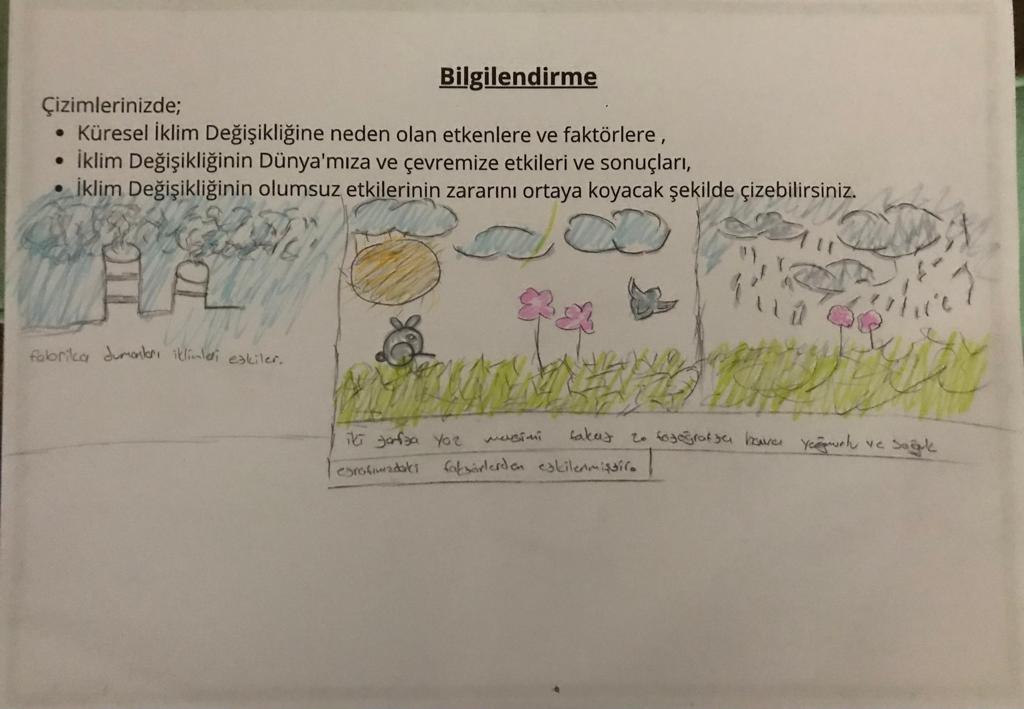 Bilgilendirme
Çizimlerinizde;
• Küresel İklim Değişikliğine neden olan etkenlere ve faktörlere ,
• İklim Değişikliğinin Dünya'mıza ve çevremize etkileri ve sonuçları,
• İklim Değişikliğinin olumsuz etkilerinin zararını ortaya koyacak şekilde çizebilirsiniz.
fabrika dumanları iklimleri etkiler.
iki tarafta yaz mevsimi fakat 2. fotoğrafta hava yağmurlu ve soğuk
etrafımızdaki faktörlerden etkilenmiştir.